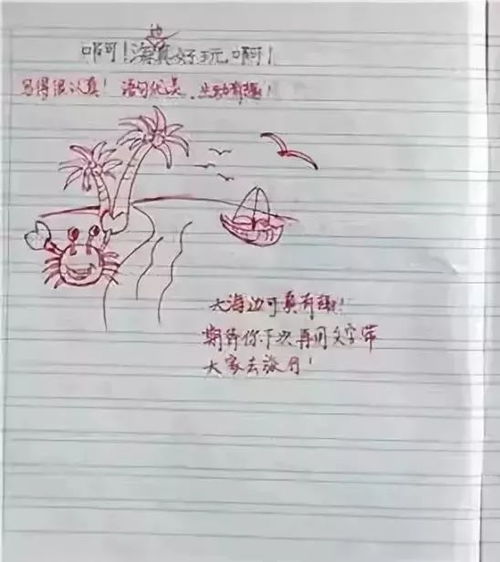 啊！海边真好玩啊！
写得很认真！语句优美、生动有趣！
大海边可真有趣！
期待你下次再用文字带
大家去旅行！